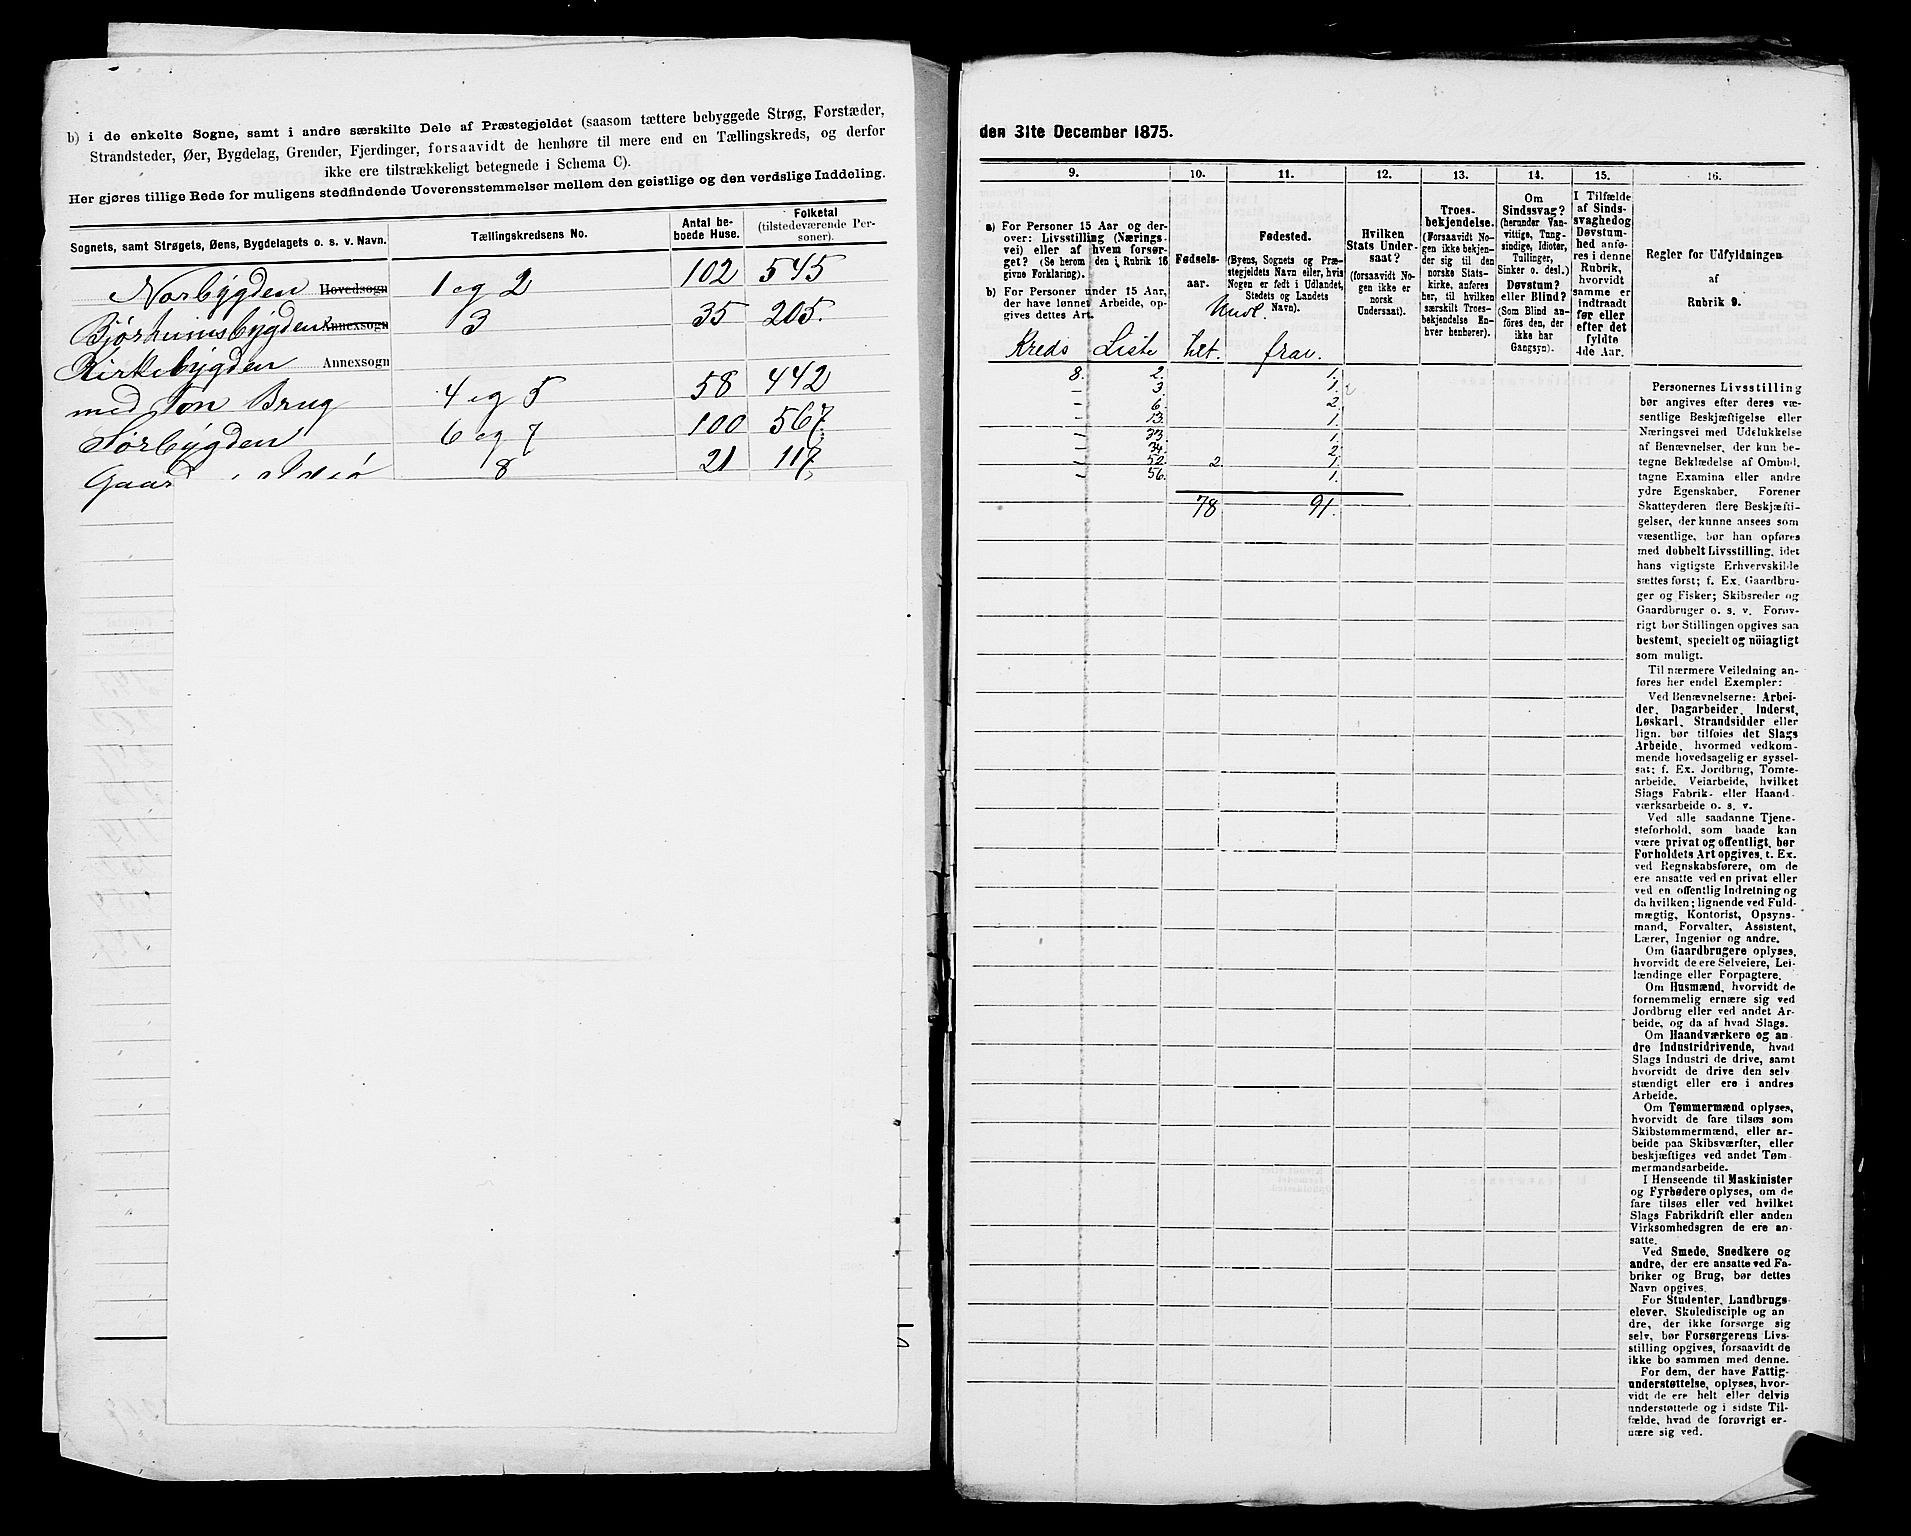 b) i de enkelte Sogne, samt i andre særskilte Dele af Præstegjeldet (saasom tættere bebyggede Strøg, Forstæder,
Strandsteder, Øer, Bygdelag, Grender, Fjerdinger, forsaavidt de henhøre til mere end en Tællingskreds, og derfor
ikke ere tilstrækkeligt betegnede i Schema C).
Her gjøres tillige Rede for muligens stedfindende Uoverensstemmelser mellem den geistlige og den verdslige Inddeling.
Sognets, samt Strøgets, Øens, Bygdelagets o. s. v. Navn. Tællingskredsens No. Antal beboede Huse. Folketal (tilstedeværende Personer).
Norbygden Hovedsogn 1 og 2 102 545
Annexsogn 3 35 205.
Kirkebygden Annexsogn
med Brug 4 og 5 58 442
Sørbygden 6 og 7 100 567
8 21 117
den 31te December 1875.
9. 10. 11. 12. 13. 14. 15. 16.
a) For Personer 15 Aar og derover: Livsstilling (Næringsvei) eller af hvem forsørget? (Se herom den i Rubrik 16 givne Forklaring).
b) For Personer under 15 Aar, der have lønnet Arbeide, opgives dettes Art.
Fødselsaar.
Fødested.
(Byens, Sognets og Præstegjeldets Navn eller, hvis Nogen er født i Udlandet, Stedets og Landets Navn).
Hvilken Stats Undersaat?
(forsaavidt Nogen ikke er norsk Undersaat).
Troesbekjendelse.
(Forsaavidt Nogen ikke bekjender sig til den norske Statskirke, anføres her, til hvilken særskilt Troesbekjendelse Enhver henhører).
Om Sindssvag?
(herunder Vanvittige, Tungsindige, Idioter, Tullinger, Sinker o. desl.)
Døvstum?
eller Blind?
(Som Blind anføres den, der ikke har Gangsyn).
I Tilfælde af Sindssvaghed og Døvstumhed anføres i denne Rubrik, hvorvidt samme er indtraadt før eller efter det fyldte 4de Aar.
Regler for Udfyldningen
af
Rubrik 9.
Kreds Liste frav.
8. 2. 1.
3. 1.
– 6. 2.
– 13. 1.
– 33. 1.
– 34. 2.
– 52. 2. 1.
– 56. 1.
78 91.
Personernes Livsstilling
bør angives efter deres væ-
sentlige Beskjæftigelse eller
Næringsvei med Udelukkelse
af Benævnelser, der kun be-
tegne Beklædelse af Ombud,
tagne Examina eller andre
ydre Egenskaber. Forener
Skatteyderen flere Beskjæfti-
gelser, der kunne ansees som
væsentlige, bør han opføres
med dobbelt Livsstilling, idet
hans vigtigste Erhvervskilde
sættes først; f. Ex. Gaardbru-
ger og Fisker; Skibsreder og
Gaardbruger o. s. v. Forøv-
rigt bør Stillingen opgives saa
bestemt, specielt og nöiagtigt
som muligt.
Til nærmere Veiledning an-
føres her endel Exempler:
Ved Benævnelserne: Arbei-
der, Dagarbeider, Inderst,
Løskarl, Strandsidder eller
lign. bør tilføies det Slags
Arbeide, hvormed vedkom-
mende hovedsagelig er syssel-
sat; f. Ex. Jordbrug, Tomte-
arbeide, Veiarbeide, hvilket
Slags Fabrik- eller Haand-
værksarbeide o. s. v.
Ved alle saadanne Tjene-
steforhold, som baade kan
være privat og offentligt, bør
Forholdets Art opgives, t. Ex.
ved Regnskabsførere, om de
ere ansatte ved en privat eller
ved en offentlig Indretning og
da hvilken; lignende ved Fuld-
mægtig, Kontorist, Opsyns-
mand, Forvalter, Assistent,
Lærer, Ingeniør og andre.
Om Gaardbrugere oplyses,
hvorvidt de ere Selveiere, Lei-
lændinge eller Forpagtere.
Om Husmænd, hvorvidt de
fornemmelig ernære sig ved
Jordbrug eller ved andet Ar-
beide, og da af hvad Slags.
Om Haandværkere og an-
dre Industridrivende, hvad
Slags Industri de drive, samt
hvorvidt de drive den selv-
stændigt eller ere i andres
Arbeide.
Om Tømmermænd oplyses,
hvorvidt de fare tilsøs som
Skibstømmermænd, eller ar-
beide paa Skibsværfter, eller
beskjæftiges ved andet Tøm-
mermandsarbeide.
I Henseende til Maskinister
og Fyrbødere oplyses, om de
fare tilsøs eller ved hvilket
Slags Fabrikdrift eller anden
Virksomhedsgren de ere an-
satte.
Ved Smede, Snedkere og
andre, der ere ansatte ved Fa-
briker og Brug, bør dettes
Navn opgives.
For Studenter, Landbrugs-
elever, Skoledisciple og an-
dre, der ikke forsørge sig
selv, bør Forsørgerens Livs-
stilling opgives, forsaavidt de
ikke bo sammen med denne.
For dem, der have Fattig-
understøttelse, oplyses, hvor-
vidt de ere helt eller delvis
understøttede og i sidste Til-
fælde, hvad de forøvrigt er-
nære sig ved.